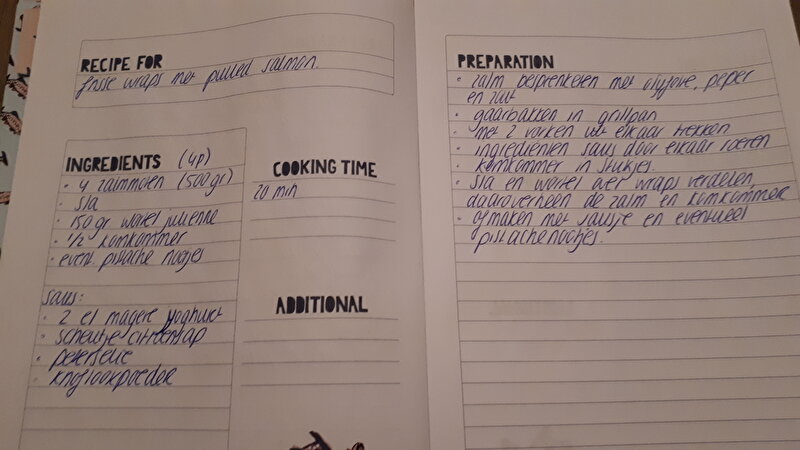 RECIPE FOR
frisse wraps met pulled salmon.
INGREDIENTS (4p)
• 4 zalmmoten (500gr)
• sla
• 150 gr wortel julienne
• 1/2 komkommer
• event. pistache nootjes
saus:
• 2 el magere yoghurt
• scheutje citroensap
• peterselie
• knoflookpoeder
COOKING TIME
20 min
ADDITIONAL
PREPARATION
• zalm besprenkelen met olijfolie, peper
en zout
• gaarbakken in grillpan
• met 2 vorken uit elkaar trekken
• ingredienten saus door elkaar roeren
• komkommer in stukjes.
• sla en wortel over wraps verdelen,
daaroverheen de zalm en komkommer
• afmaken met sausje en eventueel
pistachenootjes.